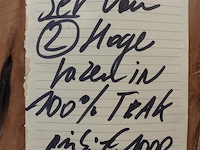 Set van
② Hoge
vazen in
100% TEAK